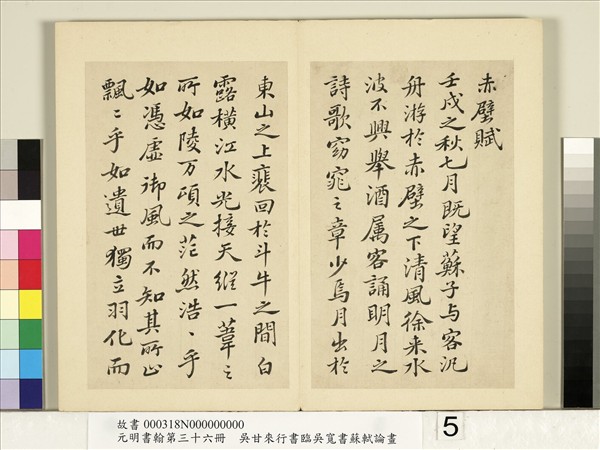 赤壁賦
壬戌之秋七月既望蘇子与客汎
舟游於赤壁之下清風徐来水
波不興舉酒属客誦明月之
詩歌窈窕之章少焉月出於
東山之上裵回於斗牛之間白
露橫江水光接天縱一葦之
所如陵万頃之茫然浩〻乎
如馮虛御風而不知其所止
飄〻乎如遺世獨立羽化而
故書 000318N000000000
元明書翰第三十六冊 吳甘來行書臨吳寬書蘇軾論畫
5